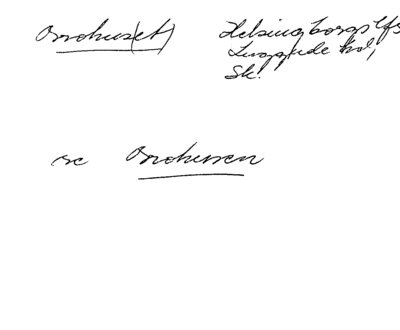 Orrohus(et) Helsingborgs lfs
Luggude hd,
Sk.
se Orrohusen